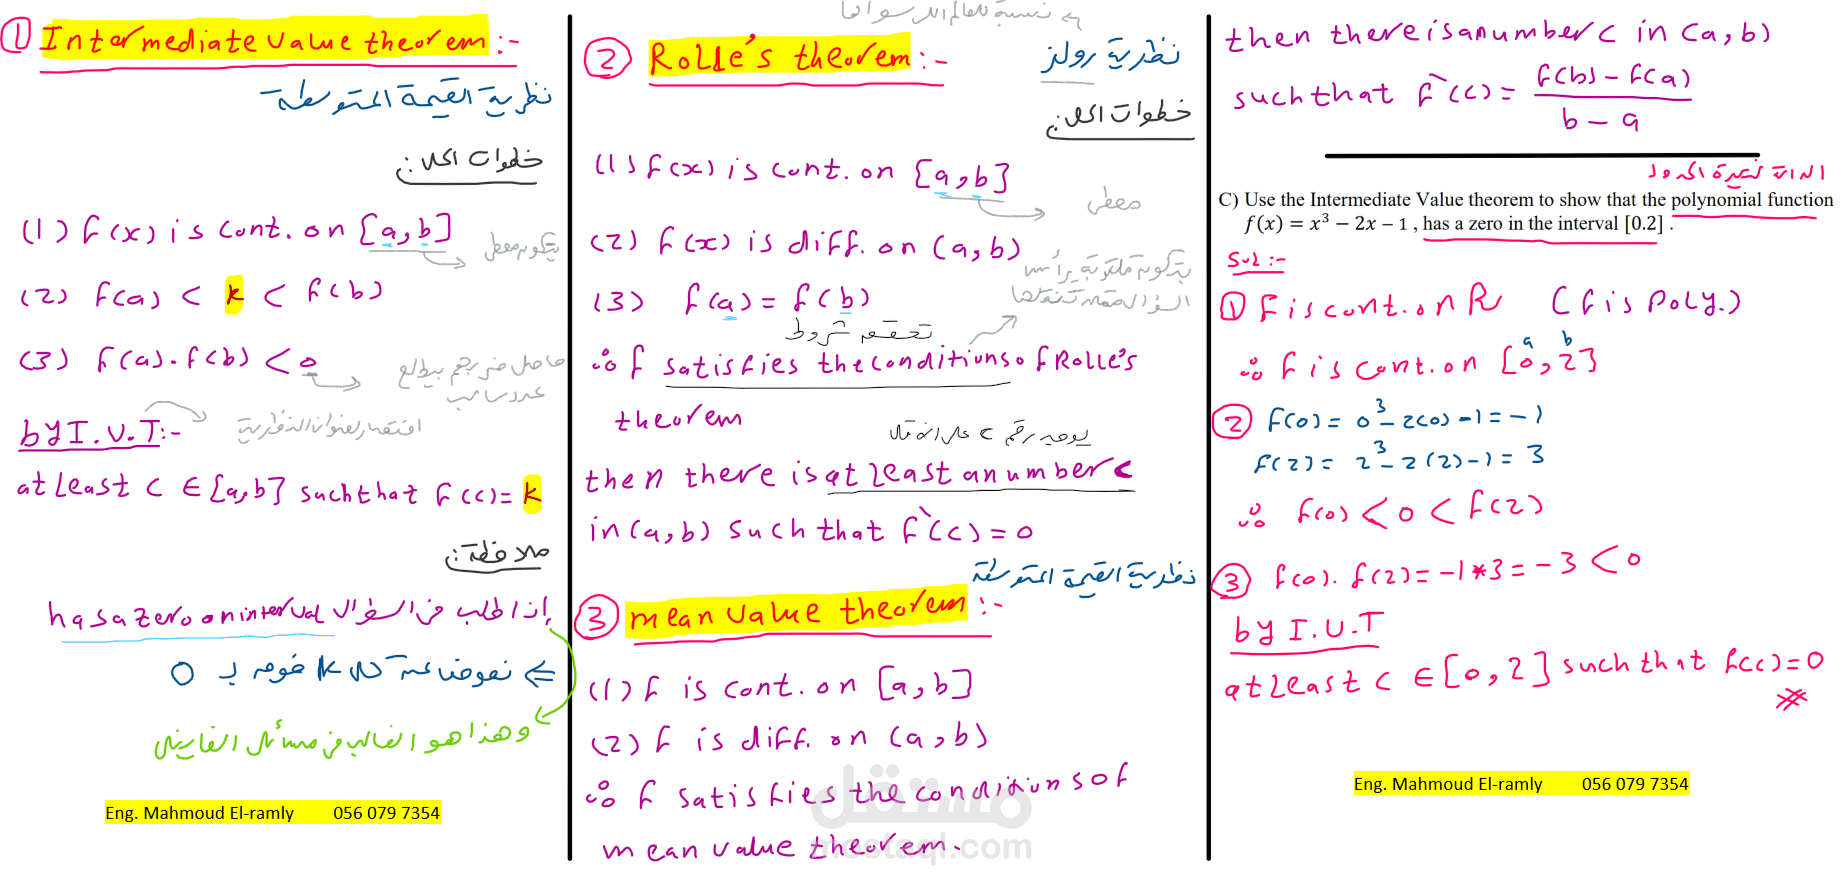 ① Intermediate value theorem :-
نظرية القيمة المتوسطة
خطوات الحل :
(1) f(x) is cont. on [a,b]
يكون معطى
(2) f(a) < k < f(b)
(3) f(a).f(b) < 0
حاصل ضربهم بيطلع
عدد سالب
by I.V.T:-
اختصار لعنوان النظرية
at least c ∈ [a,b] such that f(c)= k
ملاحظة :
إذا طلب في السؤال has a zero on interval
⇐ نعوض عن كل k خوصه بـ 0
وهذا هو الغالب في مسائل الفاينل
Eng. Mahmoud El-ramly 056 079 7354
② Rolle's theorem :-
نظرية رولز
خطوات الحل :
(1) f(x) is cont. on [a,b]
معطى
(2) f(x) is diff. on (a,b)
(3) f(a) = f(b)
تحقق شروط
∴ f satisfies the conditions of Rolle's
theorem
يوجد رقم c على الأقل
then there is at least a number c
in (a,b) such that f`(c) = 0
نظرية القيمة المتوسطة
③ mean value theorem :-
(1) f is cont. on [a,b]
(2) f is diff. on (a,b)
∴ f satisfies the conditions of
mean value theorem.
مستقل
mostaql.com
then there is a number c in (a,b)
such that f`(c) = f(b) - f(a) / b - a
الدالة كثيرة الحدود
C) Use the Intermediate Value theorem to show that the polynomial function
f(x) = x³ − 2x − 1 , has a zero in the interval [0.2] .
Sol :-
① F is cont. on R (f is poly.)
a b
∴ f is cont. on [0,2]
② f(0) = 0³ - 2(0) - 1 = -1
f(2) = 2³ - 2(2) - 1 = 3
∴ f(0) < 0 < f(2)
③ f(0). f(2) = -1*3 = -3 < 0
by I.V.T
at least c ∈ [0,2] such that f(c)=0
Eng. Mahmoud El-ramly 056 079 7354